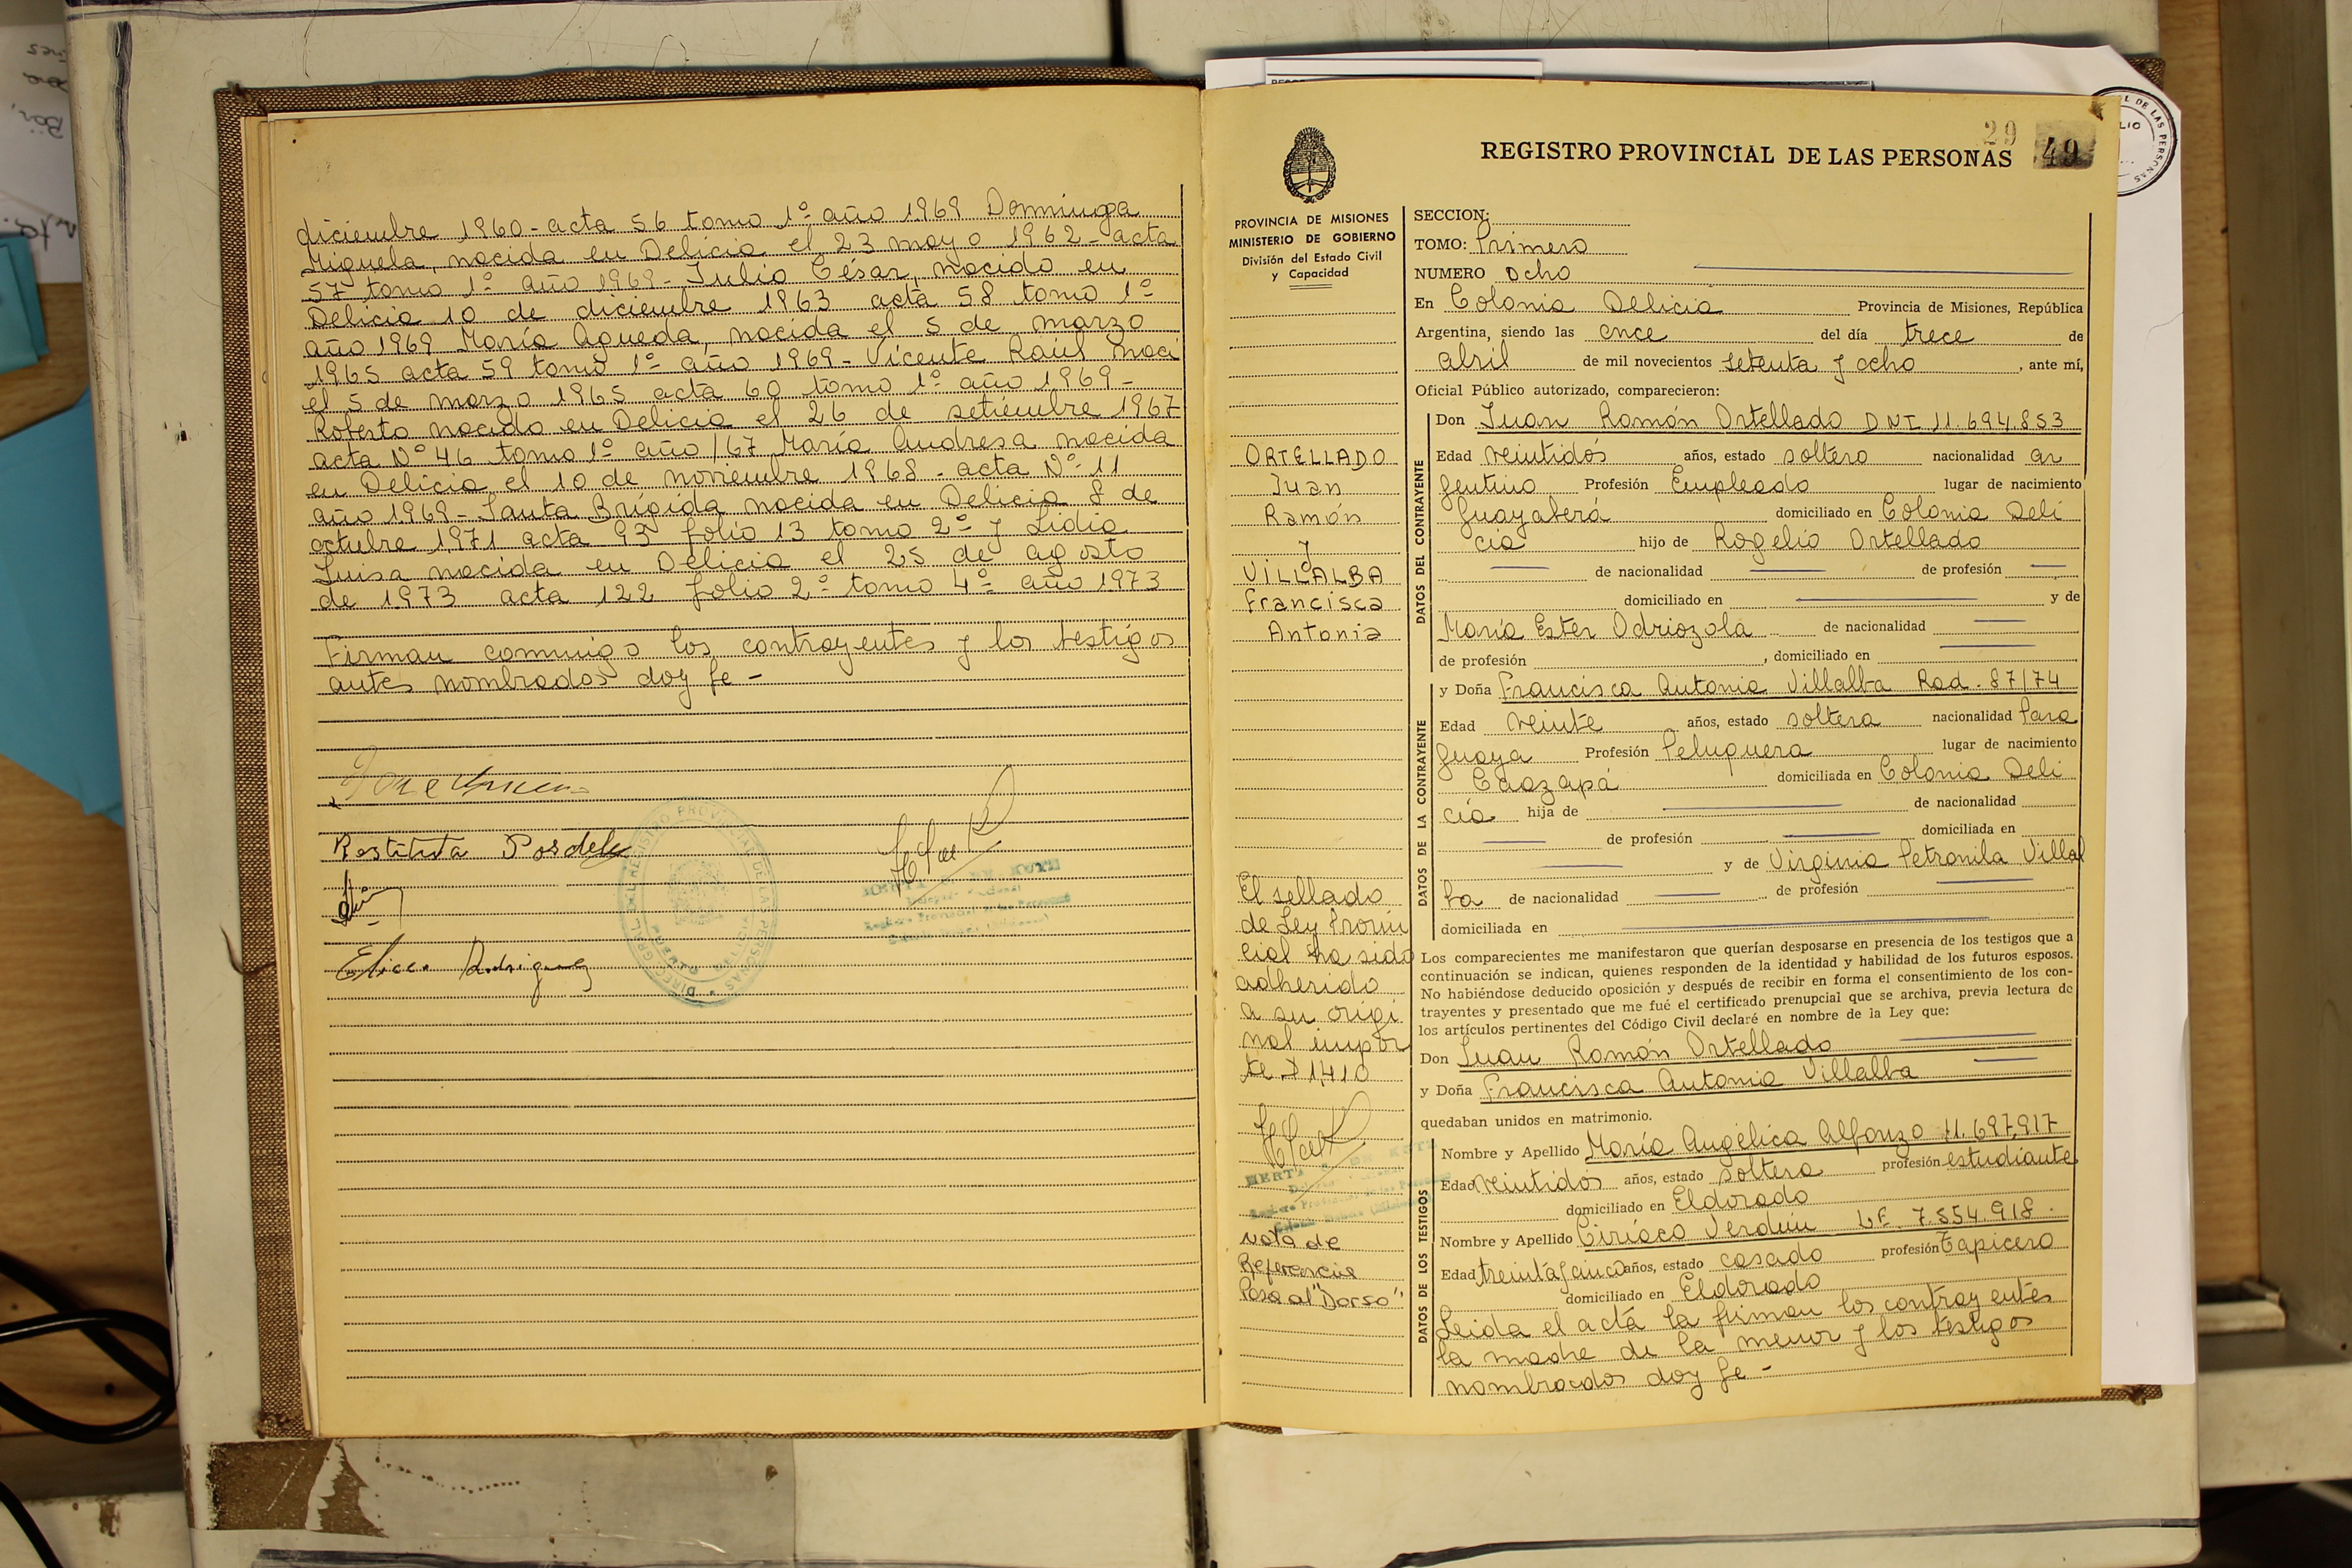 diciembre 1960 - acta 56 tomo 1º año 1969 Dominga
Miguela, nacida en Delicia el 23 mayo 1962 - acta
57 tomo 1º año 1969 - Julio César, nacido en
Delicia 10 de diciembre 1963 acta 58 tomo 1º
año 1969 María Agueda, nacida el 5 de marzo
1965 acta 59 tomo 1º año 1969 - Vicente Raúl naci
el 5 de marzo 1965 acta 60 tomo 1º año 1969 -
Roberto nacido en Delicia el 26 de setiembre 1967
acta Nº 46 tomo 1º año /67 María Andresa nacida
en Delicia el 10 de noviembre 1968 - acta Nº 11
año 1969 - Santa Brígida nacida en Delicia 8 de
octubre 1971 acta 93 folio 13 tomo 2º y Lidia
Luisa nacida en Delicia el 25 de agosto
de 1973 acta 122 folio 2º tomo 4º año 1973
Firman conmigo los contrayentes y los testigos
antes nombrados doy fe -
Restituta
Rodriguez
29
49
REGISTRO PROVINCIAL DE LAS PERSONAS
PROVINCIA DE MISIONES
MINISTERIO DE GOBIERNO
División del Estado Civil
y Capacidad
ORTELLADO
Juan
Ramón
y
VILLALBA
Francisca
Antonia
El sellado
de Ley Provin
cial ha sido
adherido
a su origi
nal impor
te $ 1,410
Nota de
Referencia
Pasa al "Dorso"
SECCION:
TOMO: Primero
NUMERO ocho
En Colonia Delicia Provincia de Misiones, República
Argentina, siendo las once del día trece de
abril de mil novecientos setenta y ocho, ante mí,
Oficial Público autorizado, comparecieron:
DATOS DEL CONTRAYENTE
Don Juan Ramón Ortellado DNI 11.694.853
Edad veintidós años, estado soltero nacionalidad ar
gentino Profesión Empleado lugar de nacimiento
Guayaberá domiciliado en Colonia Deli
cia hijo de Rogelio Ortellado
de nacionalidad de profesión
domiciliado en y de
María Ester Odriozola de nacionalidad
de profesión , domiciliado en
DATOS DE LA CONTRAYENTE
y Doña Francisca Antonia Villalba Rad. 87/74
Edad veinte años, estado soltera nacionalidad Para
guaya Profesión Peluquera lugar de nacimiento
Caazapá domiciliada en Colonia Deli
cia hija de de nacionalidad
de profesión domiciliada en
y de Virginia Petronila Villal
ba de nacionalidad de profesión
domiciliada en
Los comparecientes me manifestaron que querían desposarse en presencia de los testigos que a
continuación se indican, quienes responden de la identidad y habilidad de los futuros esposos.
No habiéndose deducido oposición y después de recibir en forma el consentimiento de los con-
trayentes y presentado que me fué el certificado prenupcial que se archiva, previa lectura de
los artículos pertinentes del Código Civil declaré en nombre de la Ley que:
Don Juan Ramón Ortellado
y Doña Francisca Antonia Villalba
quedaban unidos en matrimonio.
DATOS DE LOS TESTIGOS
Nombre y Apellido María Angélica Alfonzo 11.697.917
Edad veintidós años, estado soltera profesión estudiante
domiciliado en Eldorado
Nombre y Apellido Ciríaco Verdún L.E. 7.554.918.
Edad treinta y cinco años, estado casado profesión Tapicero
domiciliado en Eldorado
Leida el acta la firman los contrayentes
la madre de la menor y los testigos
nombrados doy fe -